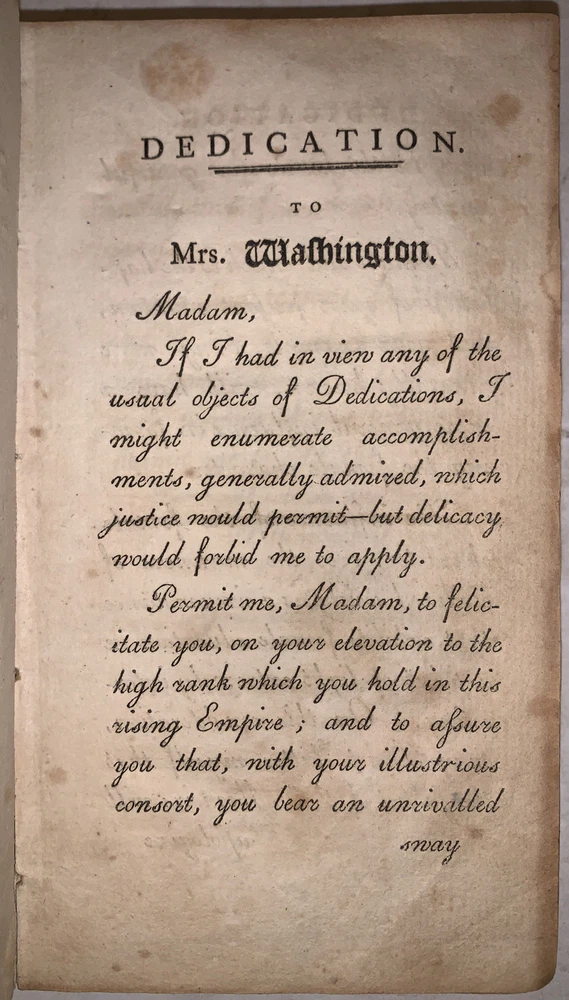 DEDICATION.
TO
Mrs. Waſhington.
Madam,
If I had in view any of the
usual objects of Dedications, I
might enumerate accomplish-
ments, generally admired, which
justice would permit—but delicacy
would forbid me to apply.
Permit me, Madam, to felic-
itate you, on your elevation to the
high rank which you hold in this
rising Empire ; and to aſsure
you that, with your illustrious
consort, you bear an unrivalled
sway